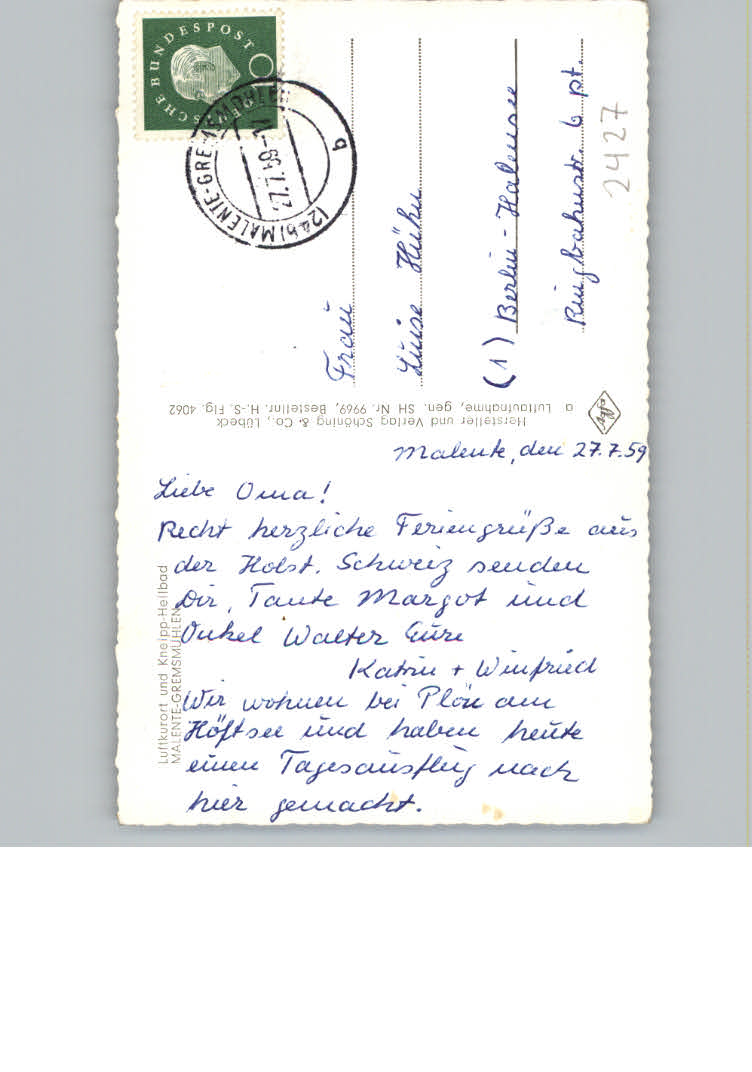 DEUTSCHE BUNDESPOST
(24b) MALENTE-GREMSMÜHLEN
27.7.59
a
Frau
Luise Hühn
(1) Berlin-Halensee
Ringbahnstr. 6 pt.
2427
Hersteller und Verlag Schöning & Co., Lübeck
a Luftaufnahme, gen. SH Nr. 9969, Bestellnr. H.-S. Flg. 4062
Agfa
Luftkurort und Kneipp-Heilbad
MALENTE-GREMSMÜHLEN
Malente, den 27.7.59
Liebe Oma!
Recht herzliche Feriengrüße aus
der Holst. Schweiz senden
Dir, Tante Margot und
Onkel Walter Eure
Katrin + Winfried
Wir wohnen bei Plön am
Höftsee und haben heute
einen Tagesausflug nach
hier gemacht.